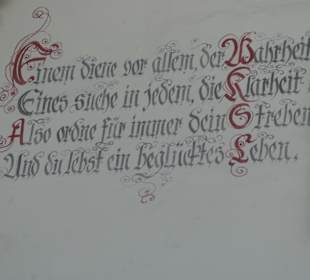 Einem diene vor allem, der Wahrheit
Eines suche in jedem, die Klarheit
Also ordne für immer dein Streben
Und du lebst ein beglücktes Leben.